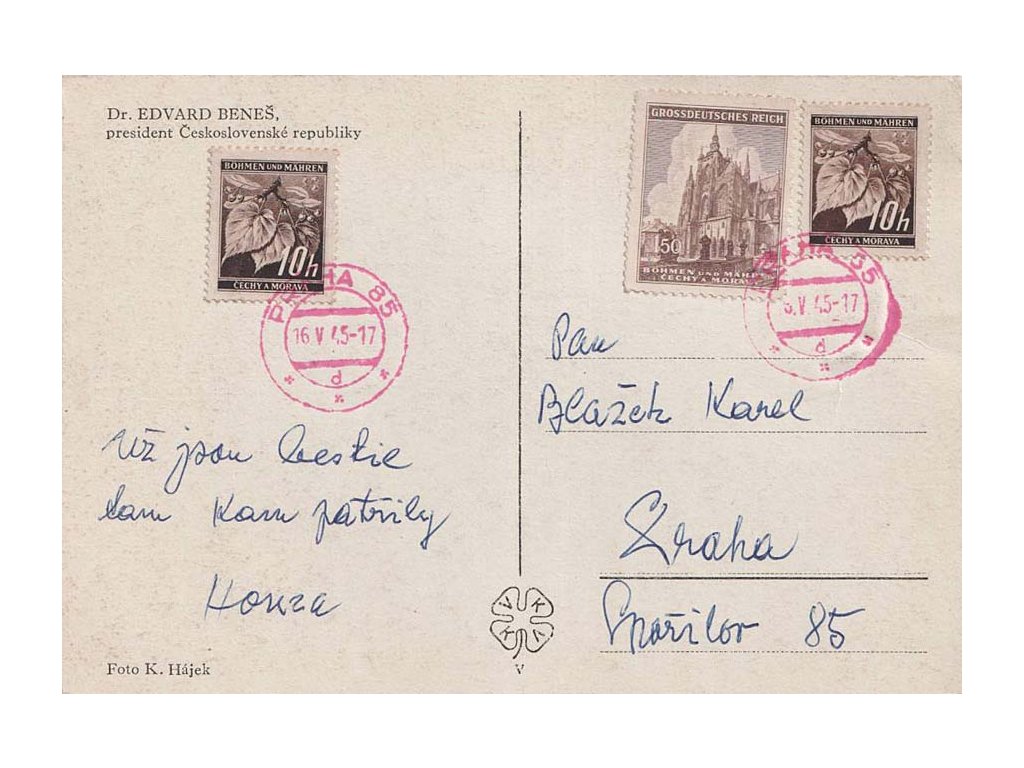 Dr. EDVARD BENEŠ,
president Československé republiky
BÖHMEN UND MÄHREN
10h
ČECHY A MORAVA
PRAHA 85
16 V 45-17
d
Už jsou
tam kam patřily
Honza
Foto K. Hájek
V K
K V
V
GROSSDEUTSCHES REICH
1.50
BÖHMEN UND MÄHREN
ČECHY A MORAVA
BÖHMEN UND MÄHREN
10h
ČECHY A MORAVA
PRAHA 85
6.V 45-17
d
Pan
Blažek Karel
Praha
Spořilov 85